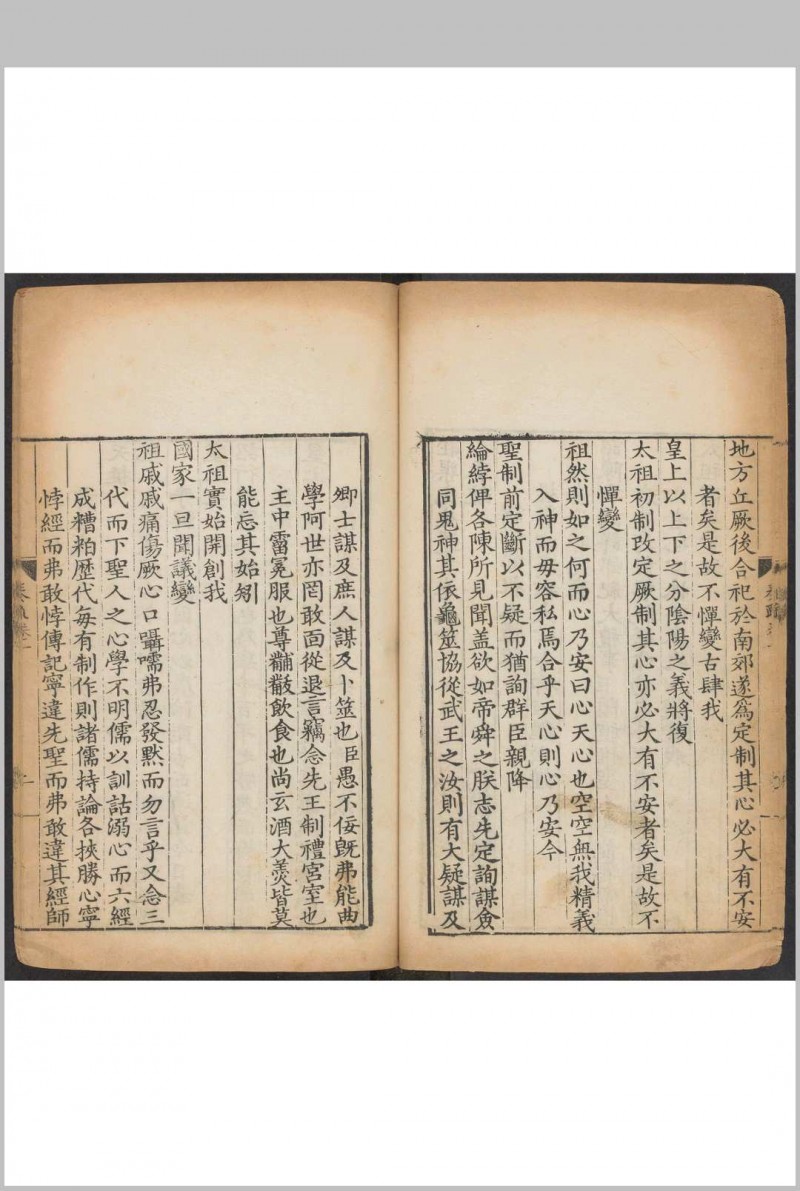 地方丘厥後合祀於南郊遂爲定制其心必大有不安
者矣是故不憚變古肆我
皇上以上下之分陰陽之義將復
太祖初制改定厥制其心亦必大有不安者矣是故不
憚變
祖然則如之何而心乃安曰心天心也空空無我精義
入神而毋容私焉合乎天心則心乃安今
聖制前定斷以不疑而猶詢群臣親降
綸綍俾各陳所見聞盖欲如帝舜之朕志先定詢謀僉
同鬼神其依龜筮協從武王之汝則有大疑謀及
卿士謀及庶人謀及卜筮也臣愚不佞旣弗能曲
學阿世亦罔敢面從退言竊念先王制禮宮室也
主中霤冕服也尊黼黻飲食也尚玄酒大羹皆莫
能忘其始矧
太祖實始開創我
國家一旦聞議變
祖戚戚痛傷厥心口囁嚅弗忍發默而勿言乎又念三
代而下聖人之心學不明儒以訓詁溺心而六經
成糟粕歷代每有制作則諸儒持論各挾勝心寧
悖經而弗敢悖傳記寧違先聖而弗敢違其經師